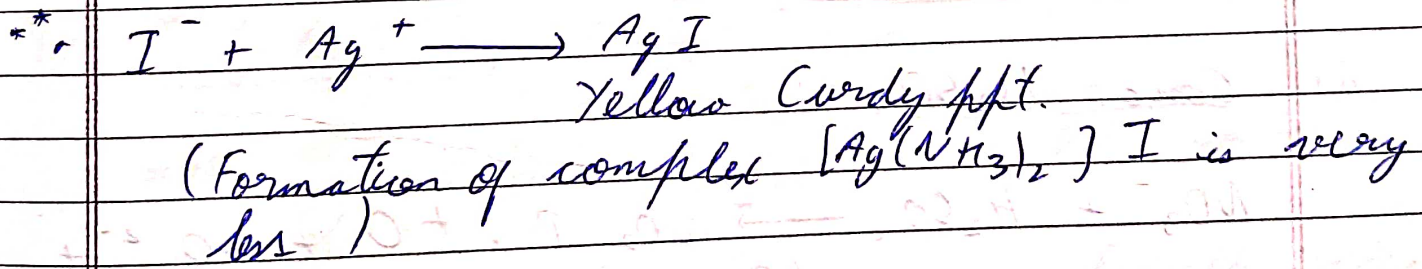 **. I⁻ + Ag⁺ ⟶ AgI
Yellow Curdy ppt.
(Formation of complex [Ag(NH₃)₂] I is very
less )